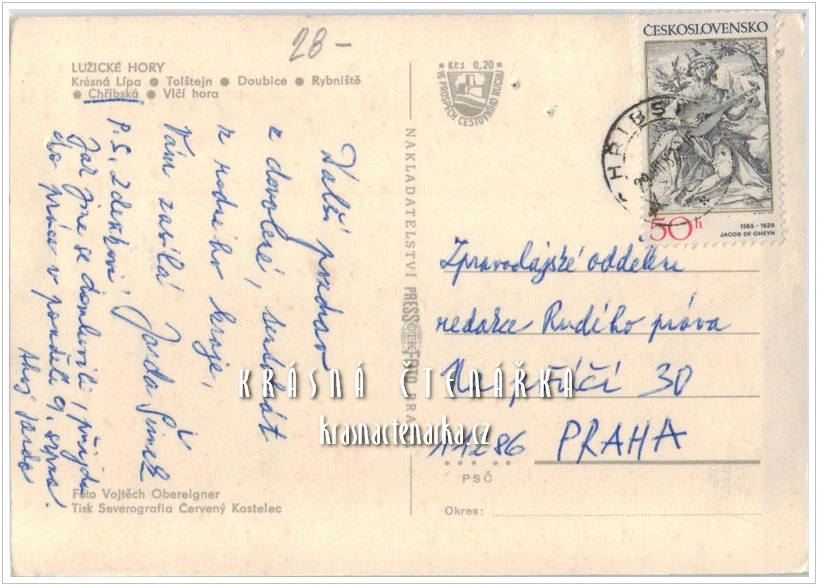 28-
LUŽICKÉ HORY
Krásná Lípa ● Tolštejn ● Doubice ● Rybniště
● Chřibská ● Vlčí hora
Další pozdrav
z dovolené, tentokrát
z rodného kraje,
Vám zasílá Jarda
P.S. Zdenkovi
Jak jsme se domluvili, přijdu
do práce v pondělí 9. srpna.
Ahoj Jarda
Foto Vojtěch Obereigner
Tisk Severografia Červený Kostelec
NAKLADATELSTVÍ PRESSFOTO PRAHA
Kčs 0,20
VE PROSPĚCH CESTOVNÍHO RUCHU
ČESKOSLOVENSKO
50h
1565-1629
JACOB DE GHEYN
CHŘIBSKÁ
Zpravodajské oddělení
redakce Rudého práva
Na poříčí 30
11286 PRAHA
PSČ
Okres:
KRÁSNÁ ČTENÁŘKA
krasnactenarka.cz